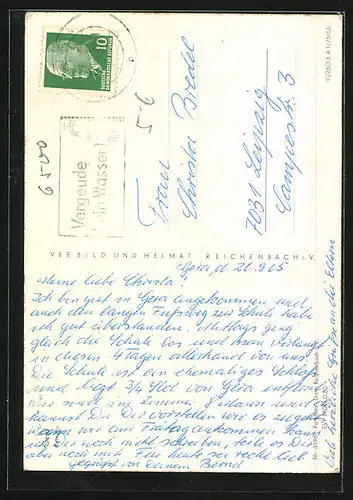 10
DEUTSCHE
DEMOKRATISCHE REPUBLIK
Vergeude
kein Wasser!
6500
56
III/26/13 A 1/75/65
Frau
Christa Bredel
7031 Leipzig
Campestr. 3
VEB BILD UND HEIMAT REICHENBACH i. V.
Gera, d 21.9.65
Meine liebe Christa!
Ich bin gut in Gera angekommen und
auch den langen Fußweg zur Schule habe
ich gut überstanden. Mittags ging
gleich die Schule los und man verlangt
in diesen 4 Tagen allerhand von uns.
Die Schule ist ein ehemaliges Schloß
und liegt 3/4 Std von Gera entfernt
wir sind im Zimmer
kannst Du Dir vorstellen wie es
wann wir am Freitag ankommen kann
ich noch nicht schreiben, teile es Dir
aber noch mit. Für heute sei recht lieb
gegrüßt von Deinem Bernd
Viel Grüße an die Eltern